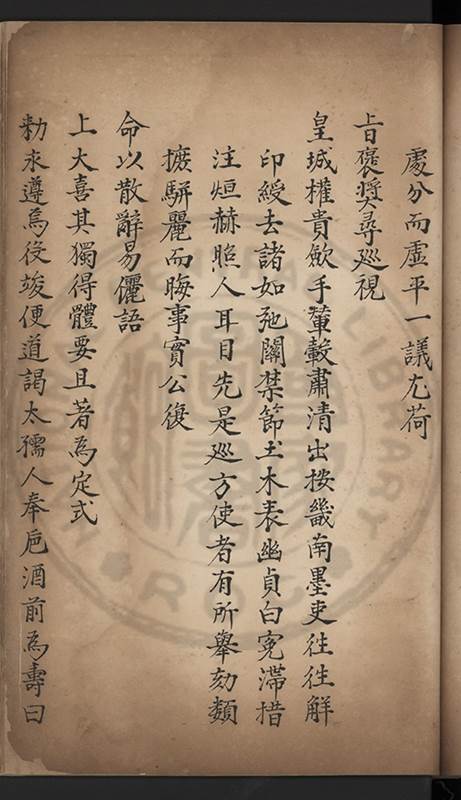 處分而虛平一議尤荷
上旨褒奬尋巡視
皇城權貴歛手輦轂肅清出按畿南墨吏徃徃解
印綬去諸如弛關禁節土木表幽貞白冤滯措
注烜赫照人耳目先是巡方使者有所舉劾類
摭駢麗而晦事實公復
命以散辭易儷語
上大喜其獨得體要且著為定式
勑永遵焉役竣便道謁太孺人奉巵酒前為壽曰